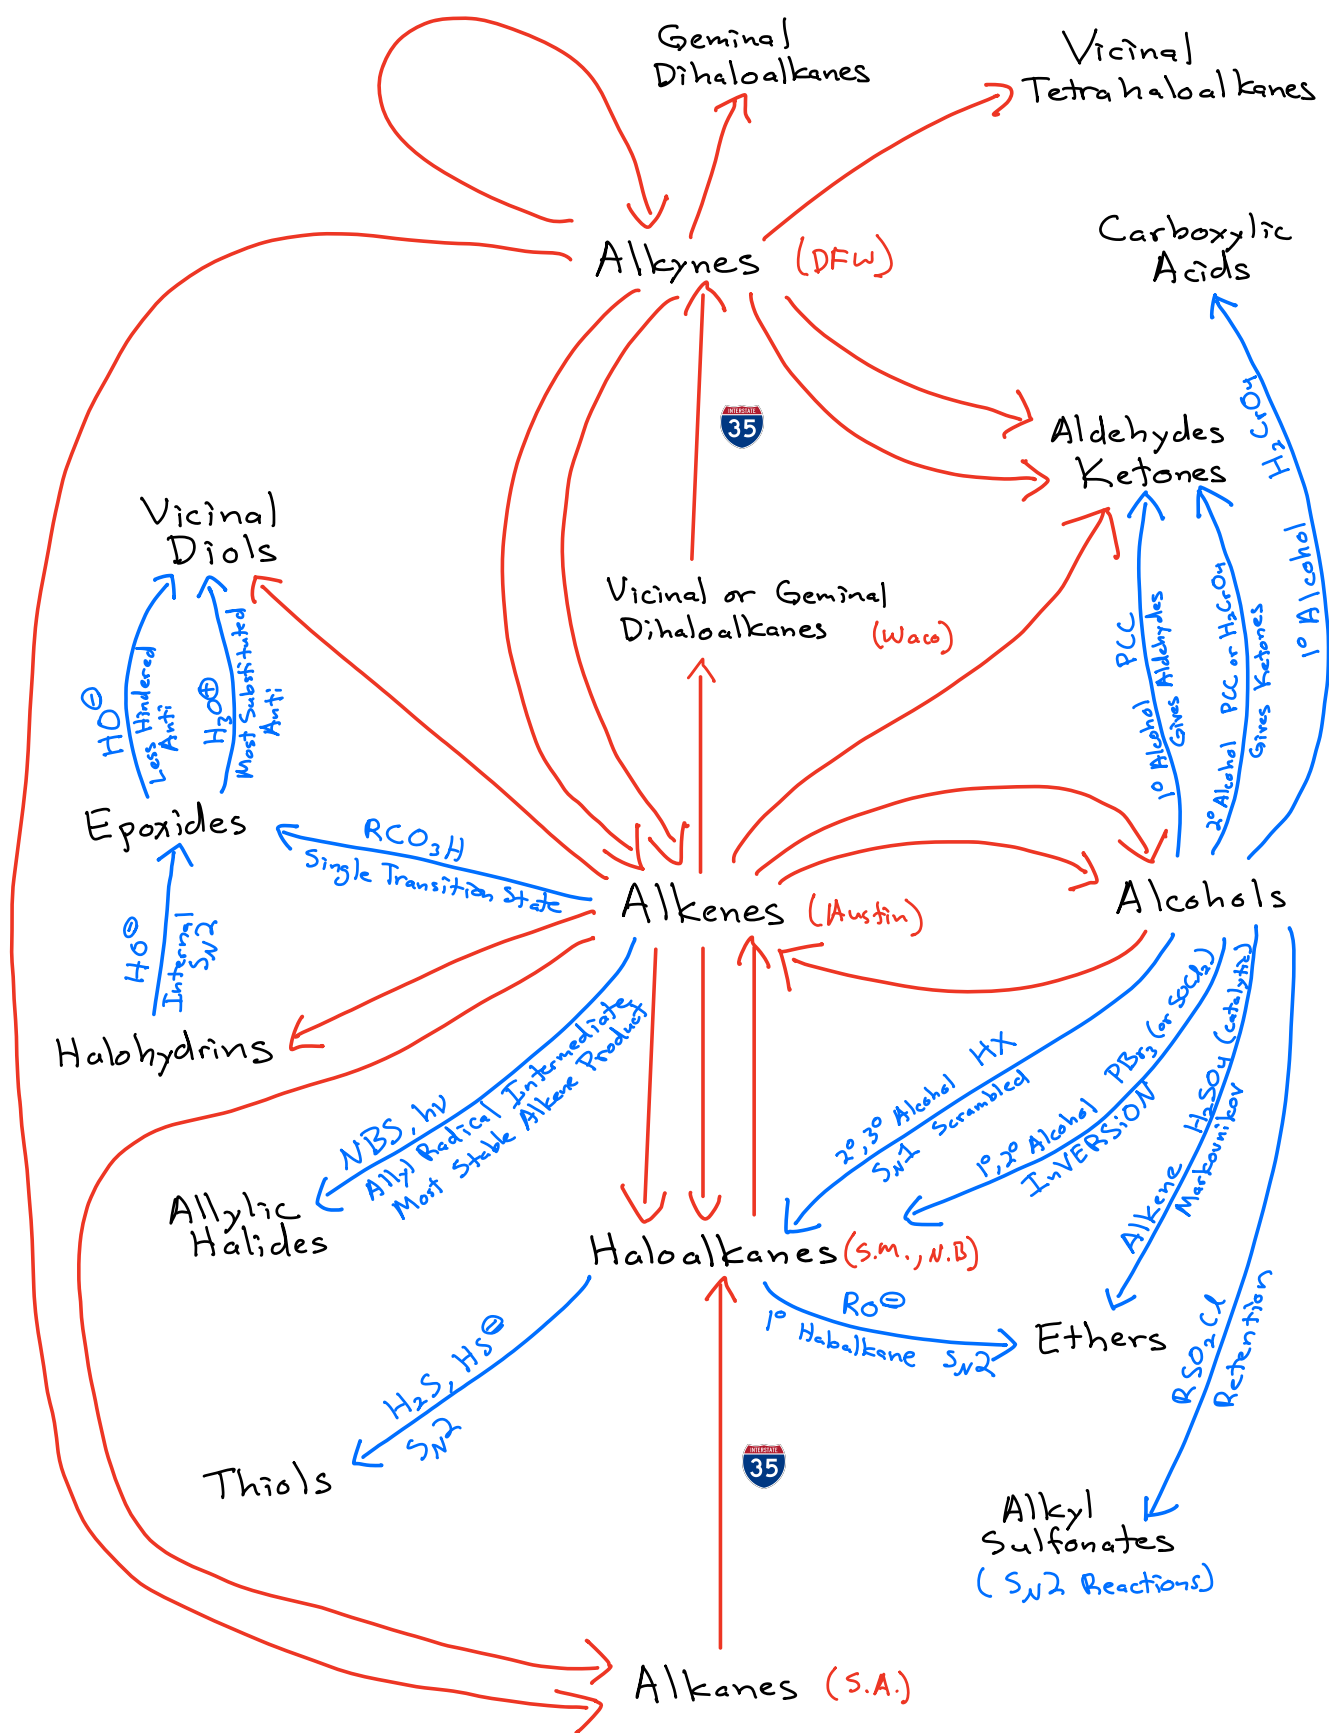 Geminal
Dihaloalkanes
Vicinal
Tetrahaloalkanes
Alkynes (DFW)
Carboxylic
Acids
H₂CrO₄
1° Alcohol
INTERSTATE
35
Aldehydes
Ketones
Vicinal
Diols
Vicinal or Geminal
Dihaloalkanes (Waco)
HO⊖
Less Hindered
Anti
H₃O⊕
Most Substituted
Anti
PCC
1° Alcohol
Gives Aldehydes
2° Alcohol PCC or H₂CrO₄
Gives Ketones
Epoxides
RCO₃H
Single Transition State
Alkenes (Austin)
Alcohols
HO⊖
Internal
SN2
Halohydrins
NBS, hν
Allyl Radical Intermediate
Most Stable Alkene Product
Allylic
Halides
2°,3° Alcohol HX
SN1 Scrambled
1°,2° Alcohol PBr₃ (or SOCl₂)
InVERSiON
Alkene H₂SO₄ (catalytic)
Markovnikov
RSO₂Cl
Retention
Haloalkanes (S.M., N.B)
RO⊖
1° Haloalkane SN2
Ethers
H₂S, HS⊖
SN2
Thiols
INTERSTATE
35
Alkyl
Sulfonates
(SN2 Reactions)
Alkanes (S.A.)